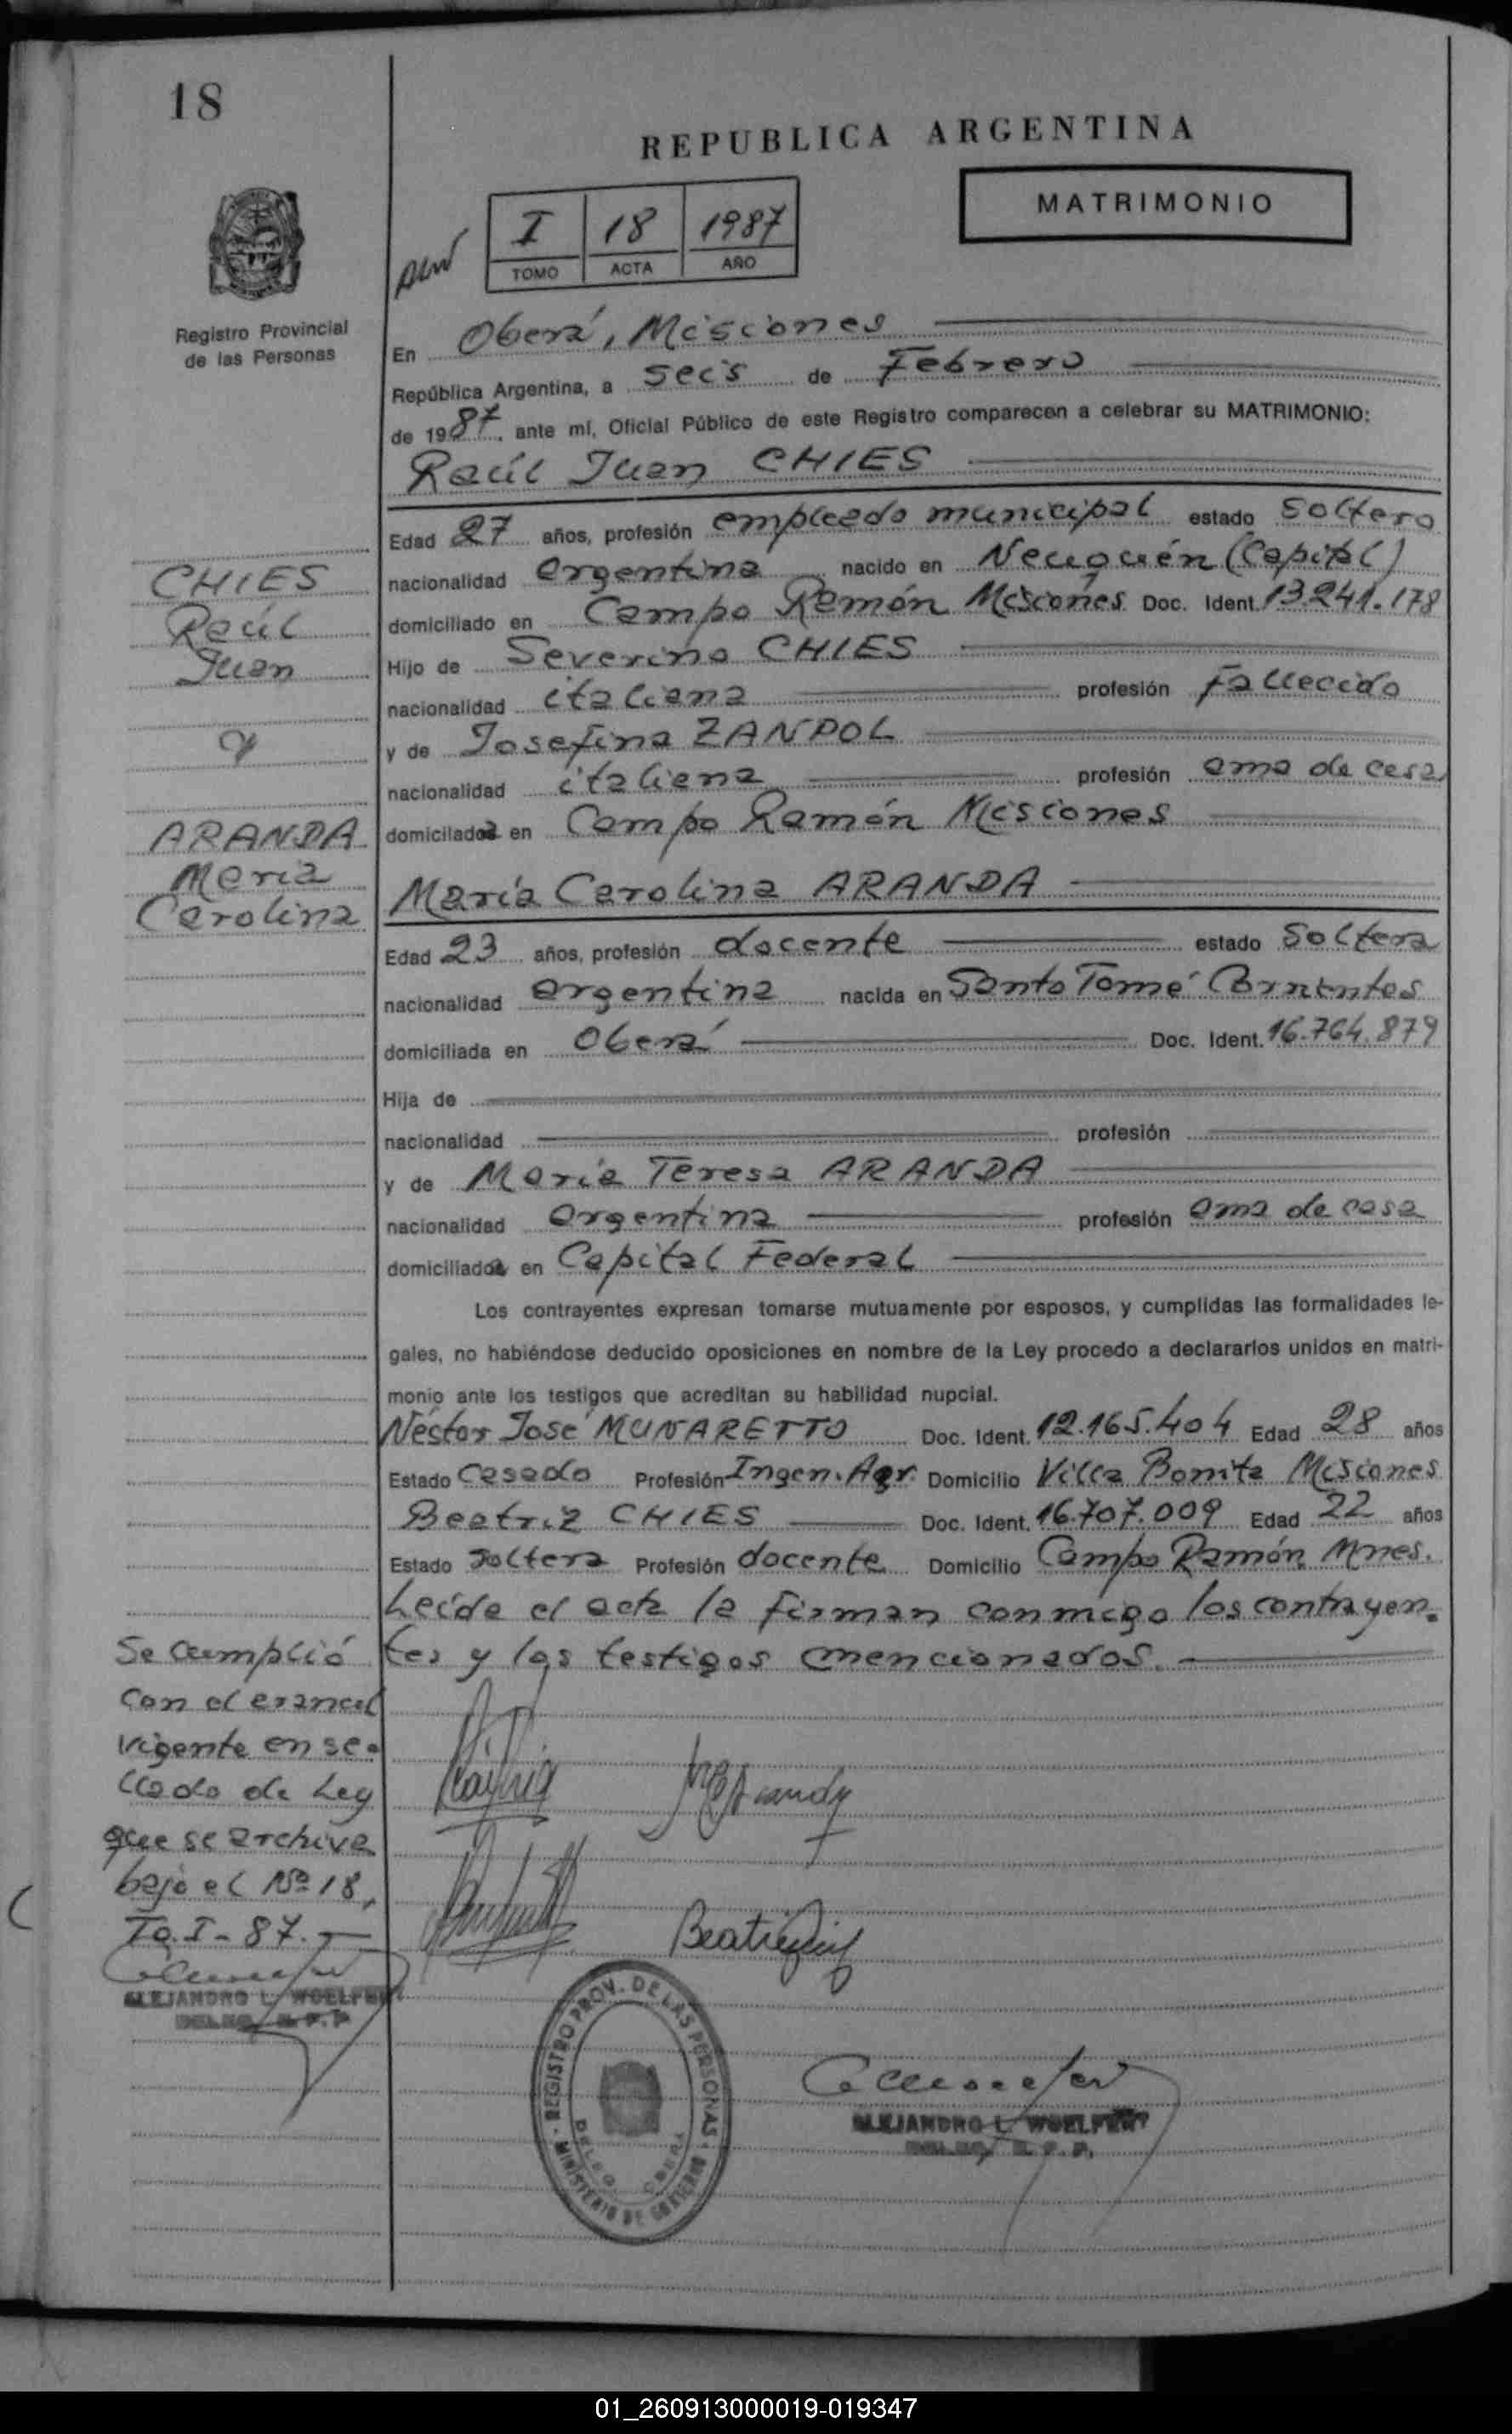 18
REPUBLICA ARGENTINA
MATRIMONIO
I 18 1987
TOMO ACTA AÑO
Registro Provincial
de las Personas
En Oberá, Misiones
República Argentina, a seis de Febrero
de 1987, ante mí, Oficial Público de este Registro comparecen a celebrar su MATRIMONIO:
Raúl Juan CHIES
Edad 27 años, profesión empleado municipal estado soltero
nacionalidad argentina nacido en Neuquén (Capital)
domiciliado en Campo Ramón Misiones Doc. Ident. 13.241.178
Hijo de Severino CHIES
nacionalidad italiana profesión Fallecido
y de Josefina ZANPOL
nacionalidad italiana profesión ama de casa
domiciliada en Campo Ramón Misiones
María Carolina ARANDA
Edad 23 años, profesión docente estado soltera
nacionalidad argentina nacida en Santo Tomé Corrientes
domiciliada en Oberá Doc. Ident. 16.764.879
Hija de
nacionalidad profesión
y de María Teresa ARANDA
nacionalidad argentina profesión ama de casa
domiciliada en Capital Federal
Los contrayentes expresan tomarse mutuamente por esposos, y cumplidas las formalidades le-
gales, no habiéndose deducido oposiciones en nombre de la Ley procedo a declararlos unidos en matri-
monio ante los testigos que acreditan su habilidad nupcial.
Néstor José MUNARETTO Doc. Ident. 12.165.404 Edad 28 años
Estado Casado Profesión Ingen. Agr. Domicilio Villa Bonita Misiones
Beatriz CHIES Doc. Ident. 16.707.009 Edad 22 años
Estado soltera Profesión docente Domicilio Campo Ramón Mnes.
Leída el acta la firman conmigo los contrayen-
tes y los testigos mencionados.
CHIES
Raúl
Juan
y
ARANDA
María
Carolina
Se cumplió
con el arancel
vigente en se-
llado de Ley
que se archiva
bajo el Nº 18,
To. I - 87.
ALEJANDRO L. WOELFERT
DELEG. R. P. P.
REGISTRO PROV. DE LAS PERSONAS
MINISTERIO DE GOBIERNO
DELEG. OBERA
ALEJANDRO L. WOELFERT
DELEG. R. P. P.
01_260913000019-019347